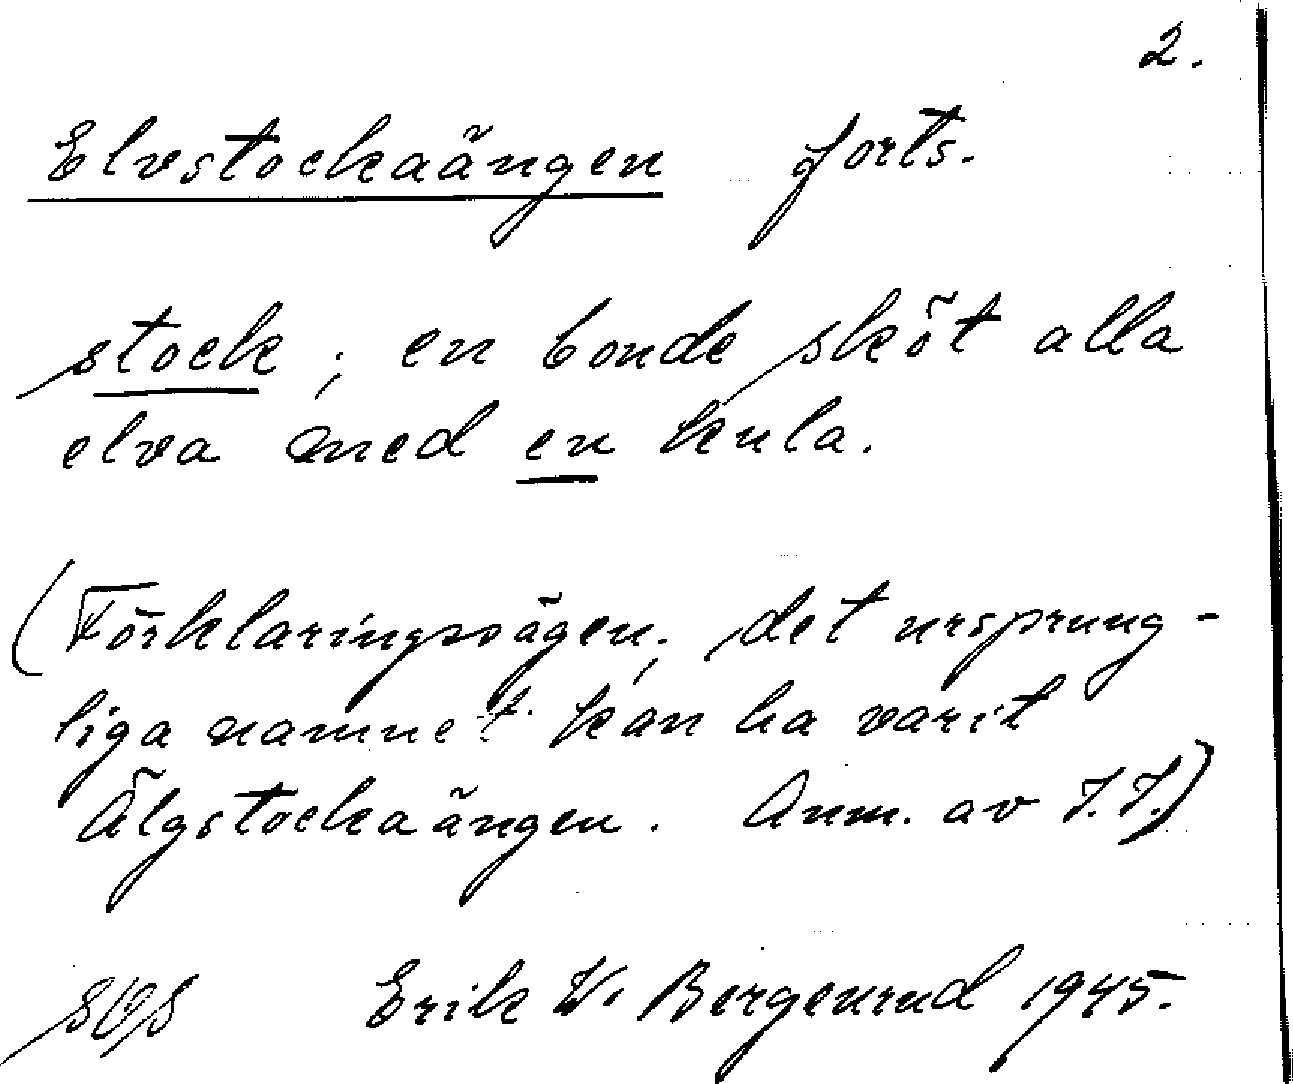 2.
Elvstockaängen forts.
stock; en bonde sköt alla
elva med en kula.
(Förklaringssägen; det ursprung-
liga namnet kan ha varit
Älgstockaängen. Anm. av J.J.)
Erik W. Bergenrud 1945.